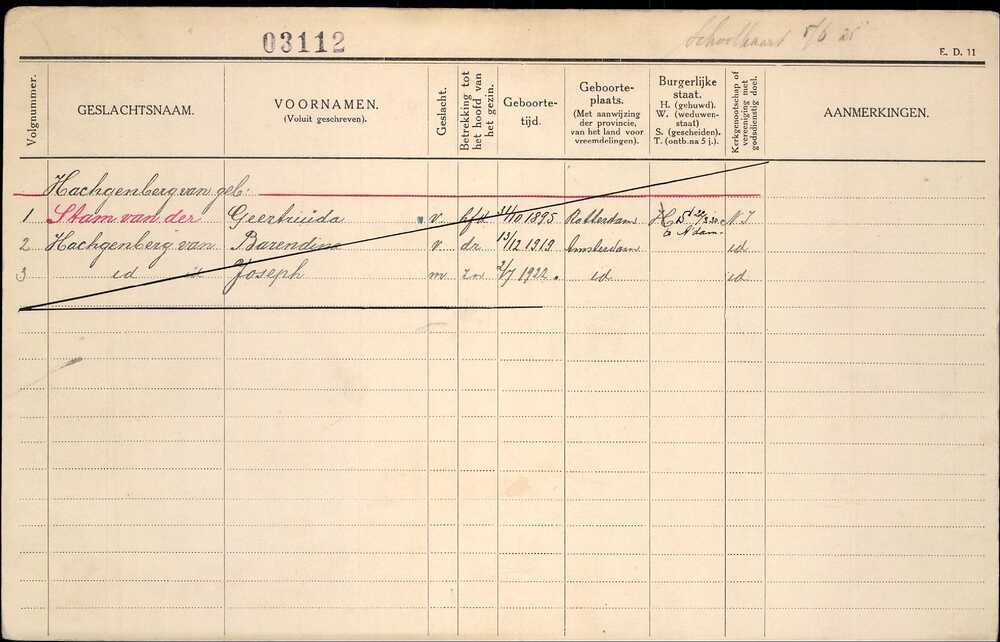 03112
Schoolkaart 5/6 25
E. D. 11
Volgnummer.
GESLACHTSNAAM.
VOORNAMEN.
(Voluit geschreven).
Geslacht.
Betrekking tot
het hoofd van
het gezin.
Geboorte-
tijd.
Geboorte-
plaats.
(Met aanwijzing
der provincie,
van het land voor
vreemdelingen).
Burgerlijke
staat.
H. (gehuwd).
W. (weduwen-
staat)
S. (gescheiden).
T. (ontb. na 5 j.).
Kerkgenootschap of
vereeniging met
godsdienstig doel.
AANMERKINGEN.
Hachgenberg van geb:
1 Stam van der Geertruida v hfd 31/10 1895 Rotterdam H S N.I
te A'dam.
2 Hachgenberg van Barendina v dr 13/12 1919 Amsterdam id
3 id Joseph m zn 2/7 1922. id id